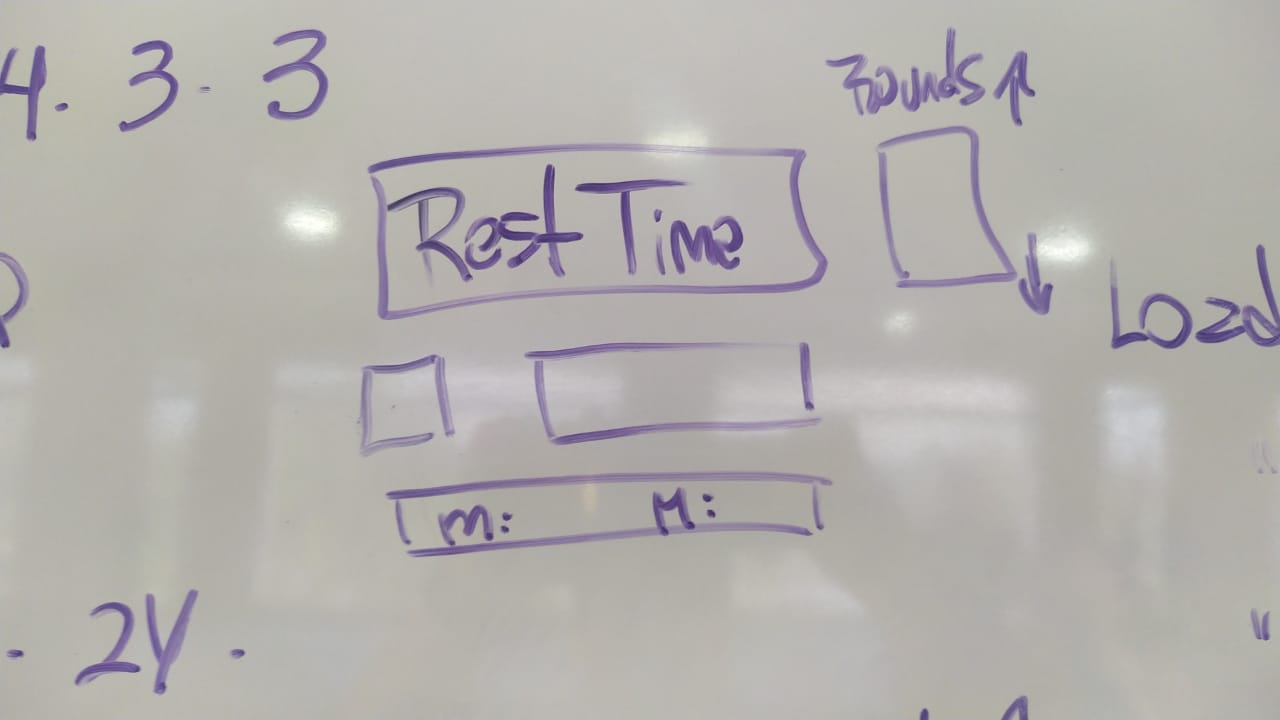 4. 3. 3
Rounds ↑
Rest Time
↓
Load
m: M:
. 24 .
"